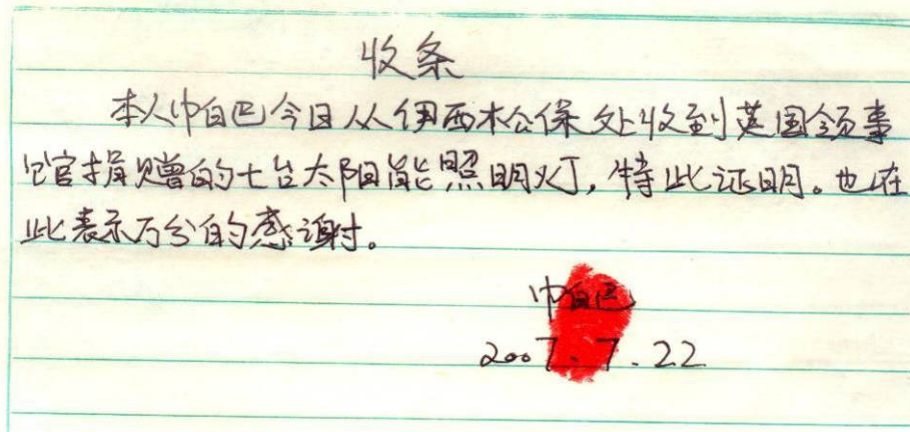 收条
本人巾白巴今日从伊西木公保处收到英国领事
馆官捐赠的七台太阳能照明灯,特此证明。也在
此表示万分的感谢。
巾白巴
2007.7.22